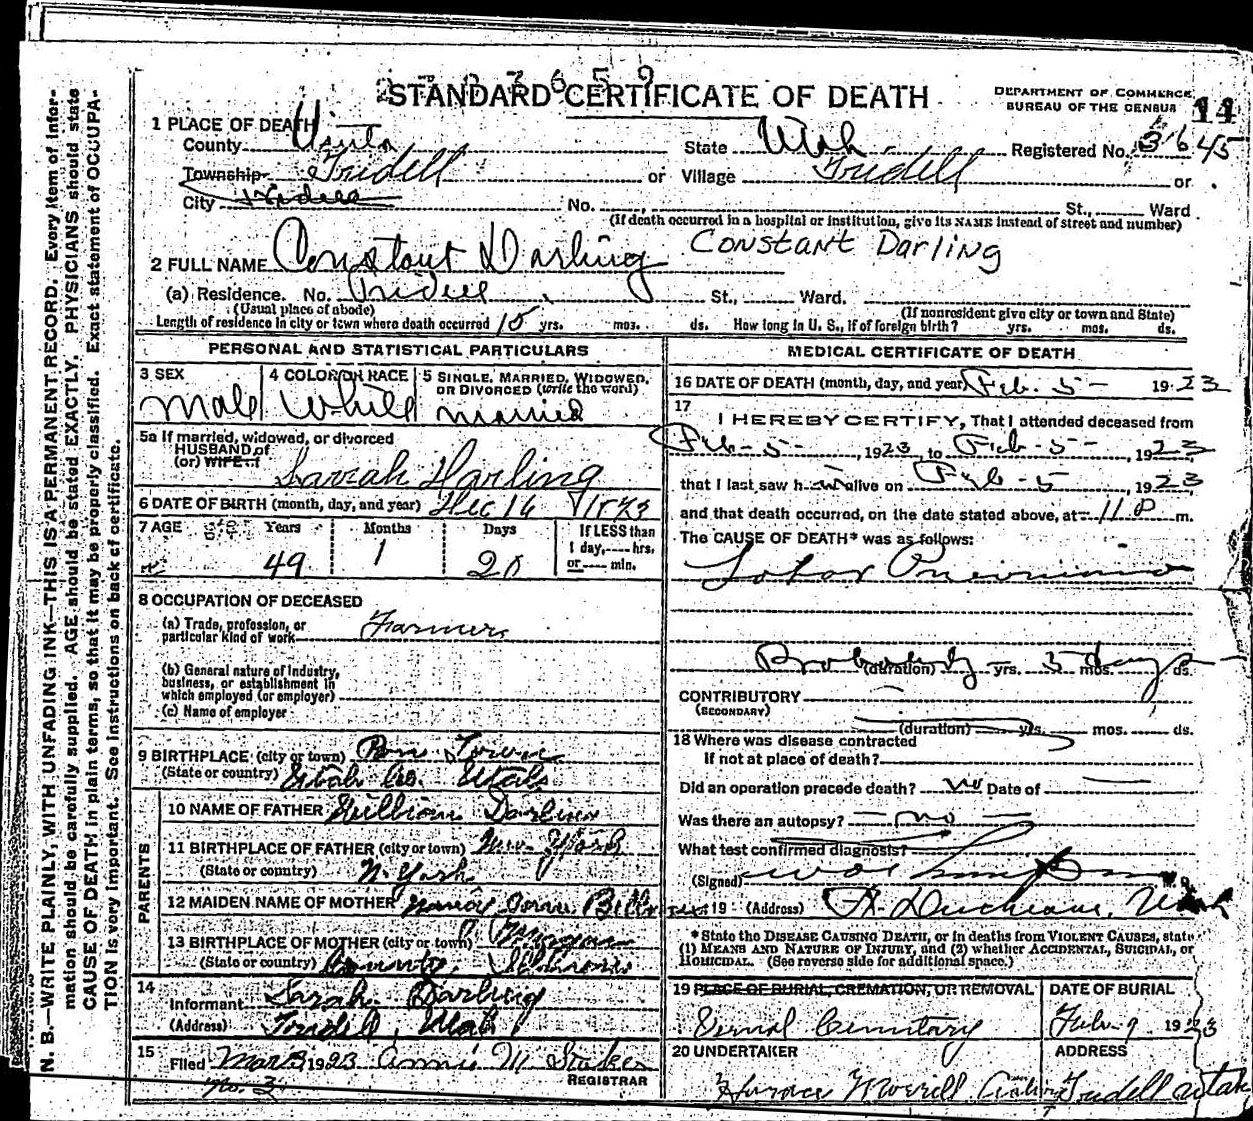 2 7 0 3 6 5 9
STANDARD CERTIFICATE OF DEATH
DEPARTMENT OF COMMERCE
BUREAU OF THE CENSUS
1 PLACE OF DEATH
County Uinta State Utah Registered No. 316 45
Township Tridell or Village Tridell or
City Tridell No. St., Ward
(If death occurred in a hospital or institution, give its NAME instead of street and number)
2 FULL NAME Constant Darling Constant Darling
(a) Residence. No. Tridell St., Ward.
(Usual place of abode) (If nonresident give city or town and State)
Length of residence in city or town where death occurred 15 yrs. mos. ds. How long in U. S., if of foreign birth? yrs. mos. ds.
PERSONAL AND STATISTICAL PARTICULARS
3 SEX 4 COLOR OR RACE 5 SINGLE, MARRIED, WIDOWED, OR DIVORCED (write the word)
Male White Married
5a If married, widowed, or divorced
HUSBAND of
(or) WIFE of Sarah Darling
6 DATE OF BIRTH (month, day, and year) Dec 16 1873
7 AGE Years Months Days If LESS than
1 day, hrs.
or min.
49 1 20
8 OCCUPATION OF DECEASED
(a) Trade, profession, or
particular kind of work Farmer
(b) General nature of industry,
business, or establishment in
which employed (or employer)
(c) Name of employer
9 BIRTHPLACE (city or town) Town
(State or country) Utah Co. Utah
PARENTS
10 NAME OF FATHER William Darling
11 BIRTHPLACE OF FATHER (city or town) New York
(State or country) N. York
12 MAIDEN NAME OF MOTHER Jane
13 BIRTHPLACE OF MOTHER (city or town) Morgan
(State or country) County, Illinois
14
Informant Sarah Darling
(Address) Tridell, Utah
15
Filed Mar 3 1923 Annie M Stoker
REGISTRAR
No. 3
MEDICAL CERTIFICATE OF DEATH
16 DATE OF DEATH (month, day, and year) Feb. 5- 1923
17
I HEREBY CERTIFY, That I attended deceased from
Feb-5-, 1923, to Feb-5-, 1923,
that I last saw him alive on Feb-5, 1923
and that death occurred, on the date stated above, at 11 P m.
The CAUSE OF DEATH* was as follows:
Lobar Pneumonia
Probably (duration) yrs. 5 mos. days ds.
CONTRIBUTORY
(SECONDARY)
(duration) yrs. mos. ds.
18 Where was disease contracted
If not at place of death?
Did an operation precede death? no Date of
Was there an autopsy? no
What test confirmed diagnosis?
(Signed) M. D.
19 (Address) Ft. Duchesne, Utah
* State the DISEASE CAUSING DEATH, or in deaths from VIOLENT CAUSES, state
(1) MEANS AND NATURE OF INJURY, and (2) whether ACCIDENTAL, SUICIDAL, or
HOMICIDAL. (See reverse side for additional space.)
19 PLACE OF BURIAL, CREMATION, OR REMOVAL DATE OF BURIAL
Vernal Cemetary Feb-9 1923
20 UNDERTAKER ADDRESS
Horace Morrill Tridell Utah
N. B.—WRITE PLAINLY, WITH UNFADING INK—THIS IS A PERMANENT RECORD. Every item of infor-
mation should be carefully supplied. AGE should be stated EXACTLY. PHYSICIANS should state
CAUSE OF DEATH in plain terms, so that it may be properly classified. Exact statement of OCCUPA-
TION is very important. See instructions on back of certificate.